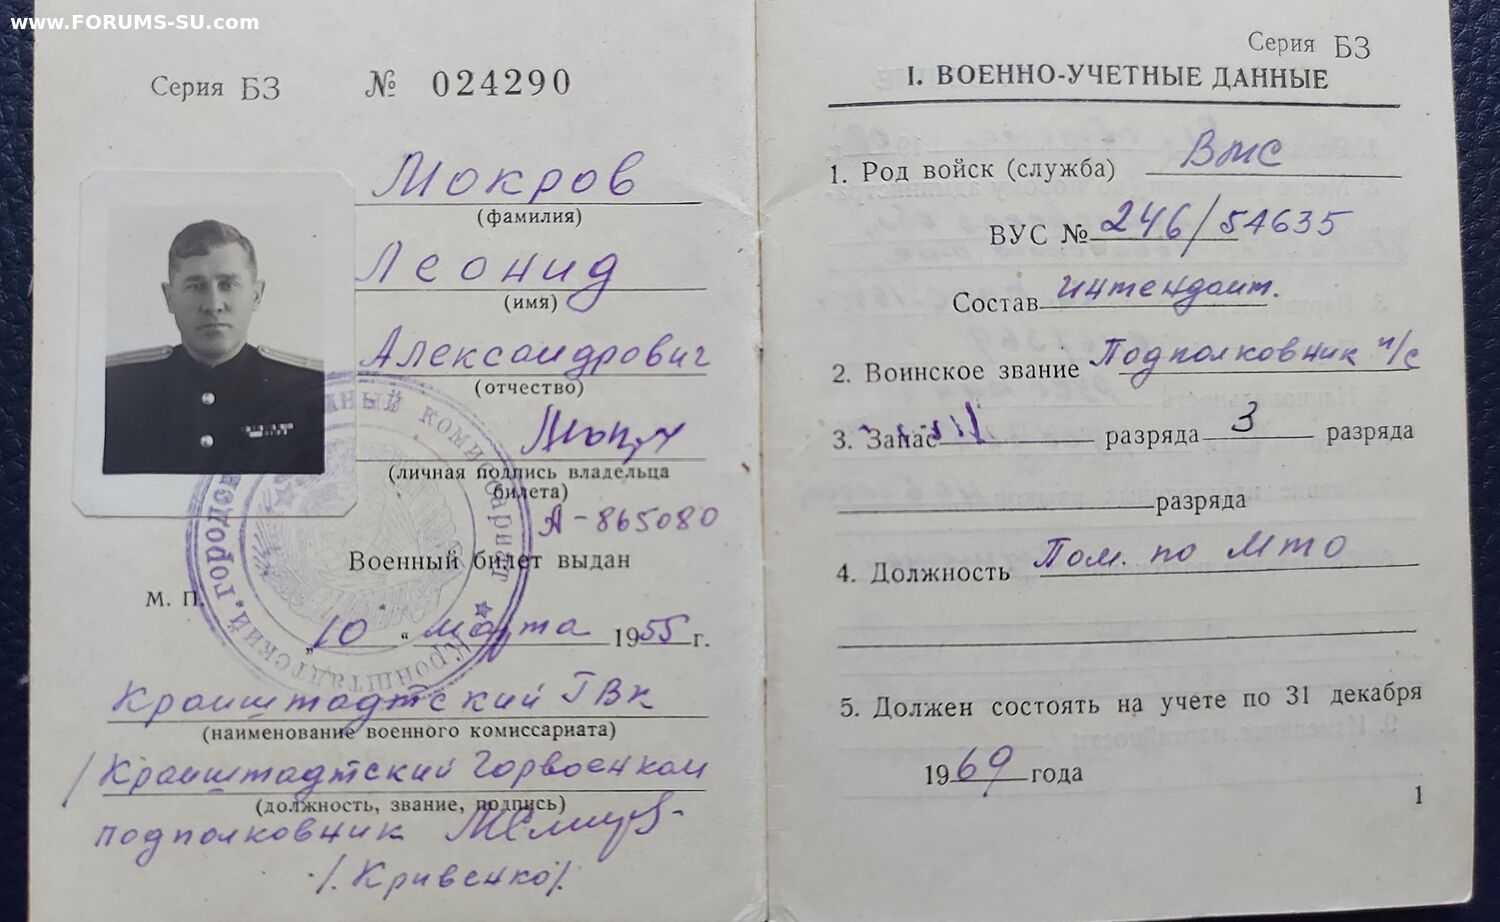 www.FORUMS-SU.com
Серия БЗ № 024290
Мокров
(фамилия)
Леонид
(имя)
Александрович
(отчество)
(личная подпись владельца
билета)
А-865080
Военный билет выдан
М. П.
„10“ марта 1955 г.
Кронштадтский ГВК
(наименование военного комиссариата)
/Кронштадтский Горвоенком
(должность, звание, подпись)
подполковник
/.Кривенко/.
Кронштадтский городской военный комиссариат
Серия БЗ
I. ВОЕННО-УЧЕТНЫЕ ДАННЫЕ
1. Род войск (служба) ВМС
ВУС № 246/54635
Состав интендант.
2. Воинское звание Подполковник и/с
3. Запас разряда 3 разряда
разряда
4. Должность Пом. по МТО
5. Должен состоять на учете по 31 декабря
1969 года
1